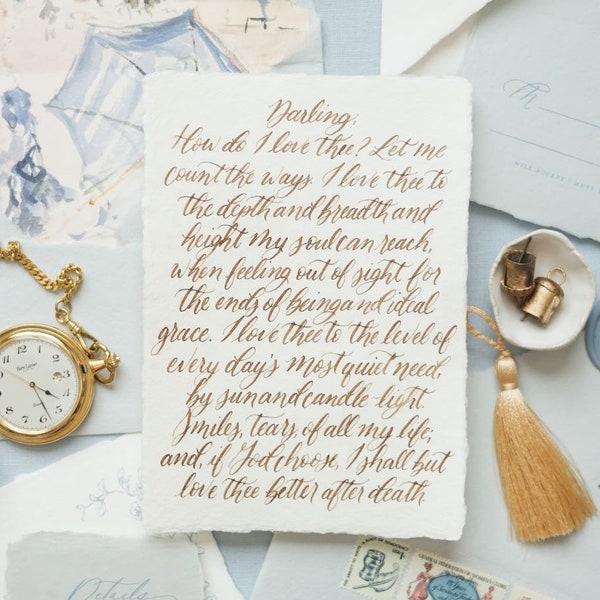 Darling,
How do I love thee? Let me
count the ways. I love thee to
the depth and breadth and
height my soul can reach,
when feeling out of sight for
the ends of being and ideal
grace. I love thee to the level of
every day's most quiet need
by sun and candle-light.
Smiles, tears, of all my life;
and, if God choose, I shall but
love thee better after death
M
WILL ACCEPT
Details
12 1 2 3 4 5 6 7 8 9 10 11